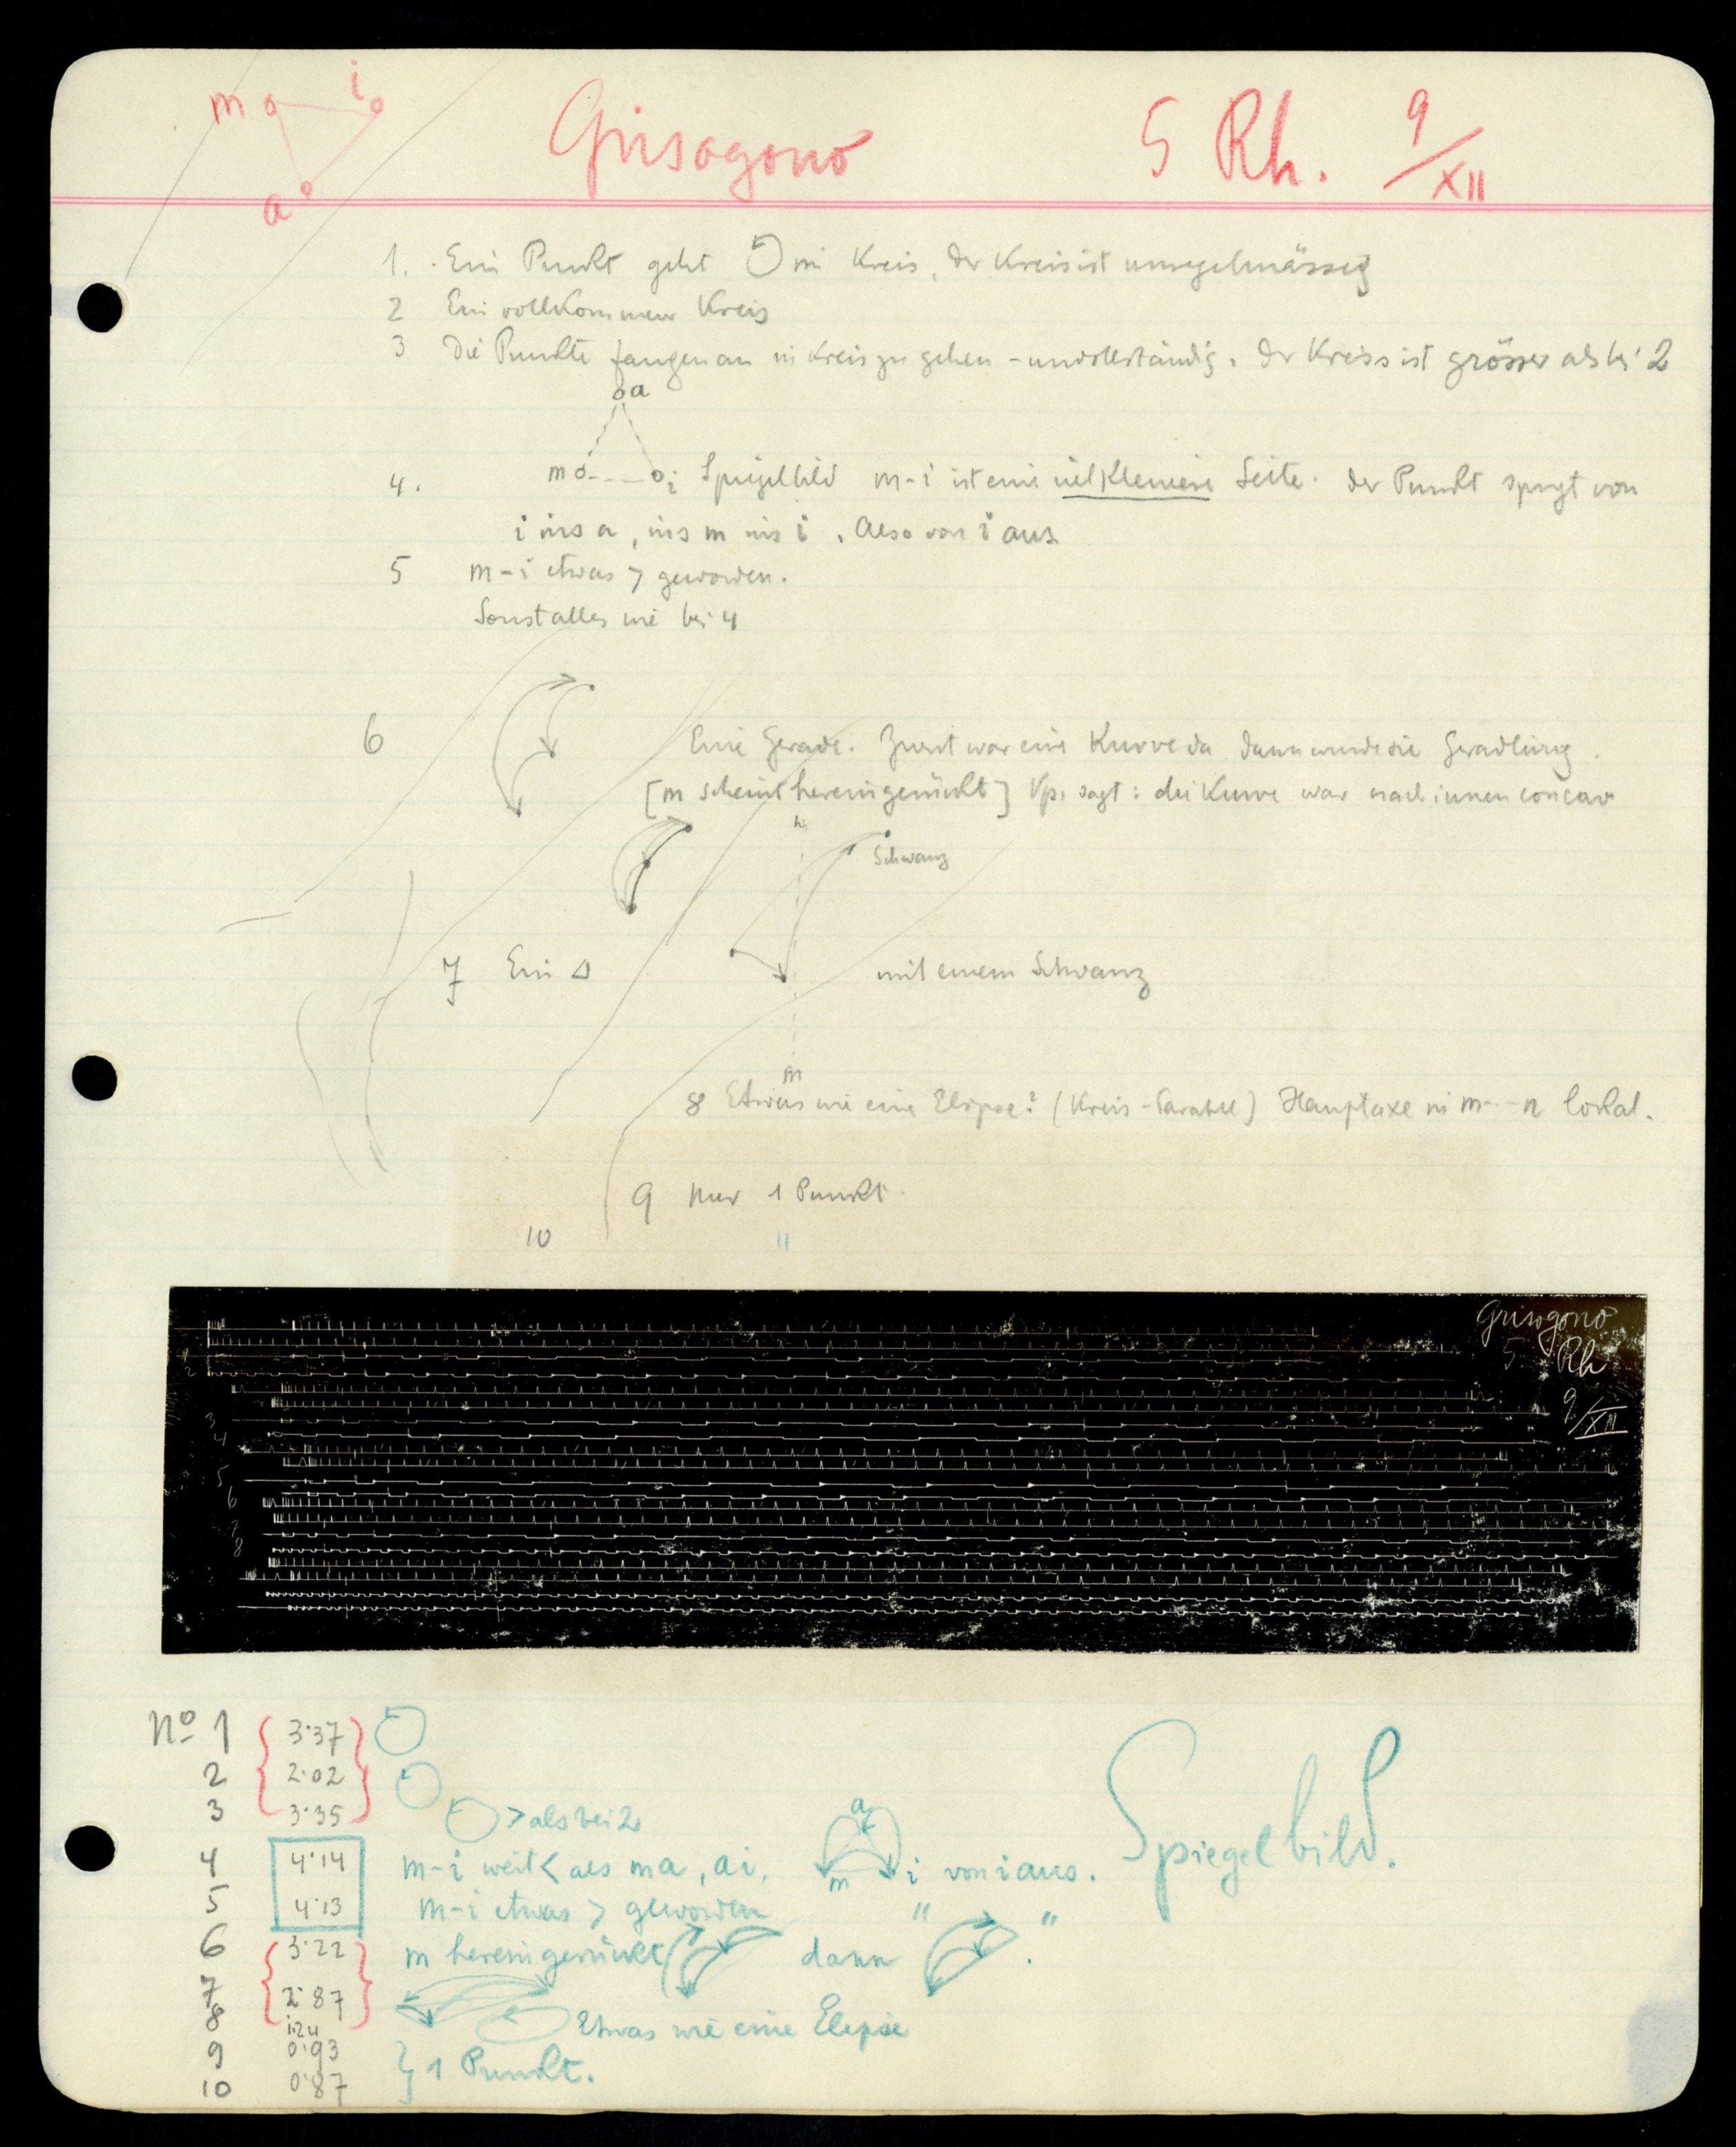 m i
a
Grisogono 5 Rh. 9/XII
1. Ein Punkt geht im Kreis, der Kreis ist unregelmässig
2 Ein vollkommener Kreis
3 Die Punkte fangen an im Kreis zu gehen - unvollständig. Der Kreis ist grösser als bei 2
a
4. m i Spiegelbild m-i ist eine viel kleinere Seite. Der Punkt springt von
i ins a, ins m ins i. Also von i aus.
5 m-i etwas > geworden.
Sonst alles wie bei 4
6 Eine Gerade. Zuerst war eine Kurve da dann wurde sie Geradlinig.
[m scheint hereingerückt] Vp. sagt: die Kurve war nach innen concav
n
Schwanz
7 Ein △ mit einem Schwanz
m
8 Etwas wie eine Elipse? (Kreis - ) Hauptaxe in m--n lokal.
9 Nur 1 Punkt.
10 "
Grisogono
5 Rh
9/XII
1
2
3
4
5
6
7
8
No 1 { 3·37 }
2 2·02
3 3·35 > als bei 2
4 4·14 m-i weit < als ma, ai. a m i von i aus.
Spiegelbild.
5 4·13 m-i etwas > geworden " "
6 { 3·22 } m hereingerückt dann .
7 2·87
8 1·24 Etwas wie eine Elipse
9 0·93
10 0·87 } 1 Punkt.